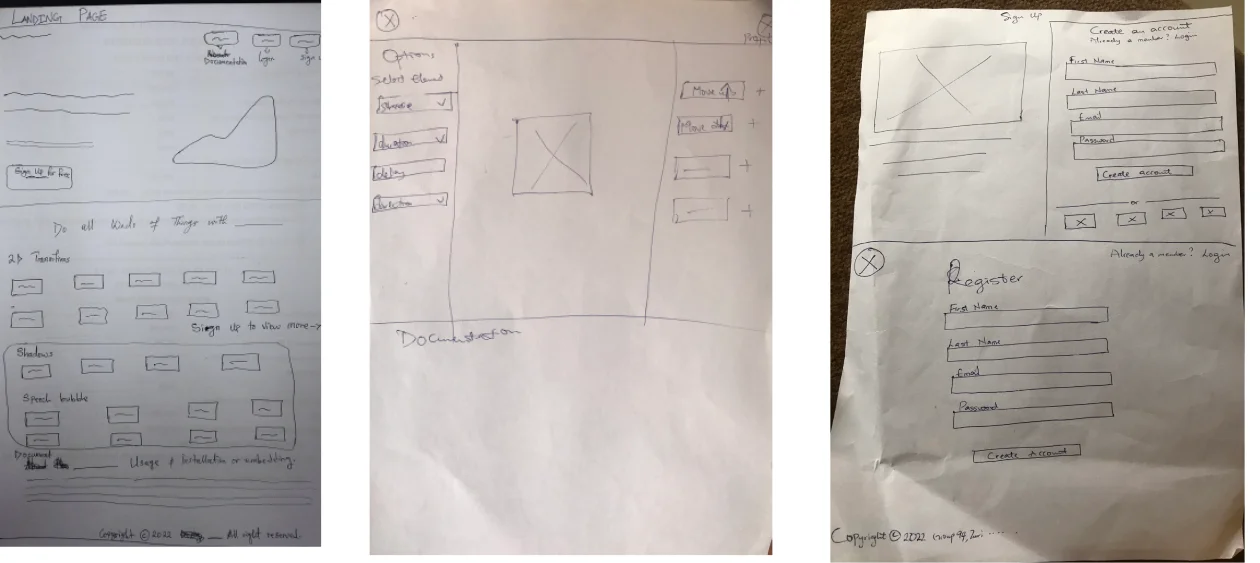 LANDING PAGE
Documentation
Login
Sign
Sign Up for free
Do all kinds of Things with
2D Transitions
Sign Up to view more
Shadows
Speech bubble
Document
Usage & Installation or embedding.
Copyright © 2022 All right reserved.
Options
Select Element
duration
delay
direction
Move
Move
Documentation
Sign Up
Create an account
Already a member? Login
First Name
Last Name
Email
Password
Create account
or
Already a member? Login
Register
First Name
Last Name
Email
Password
Create Account
Copyright © 2022 Group 49, Zuri ......